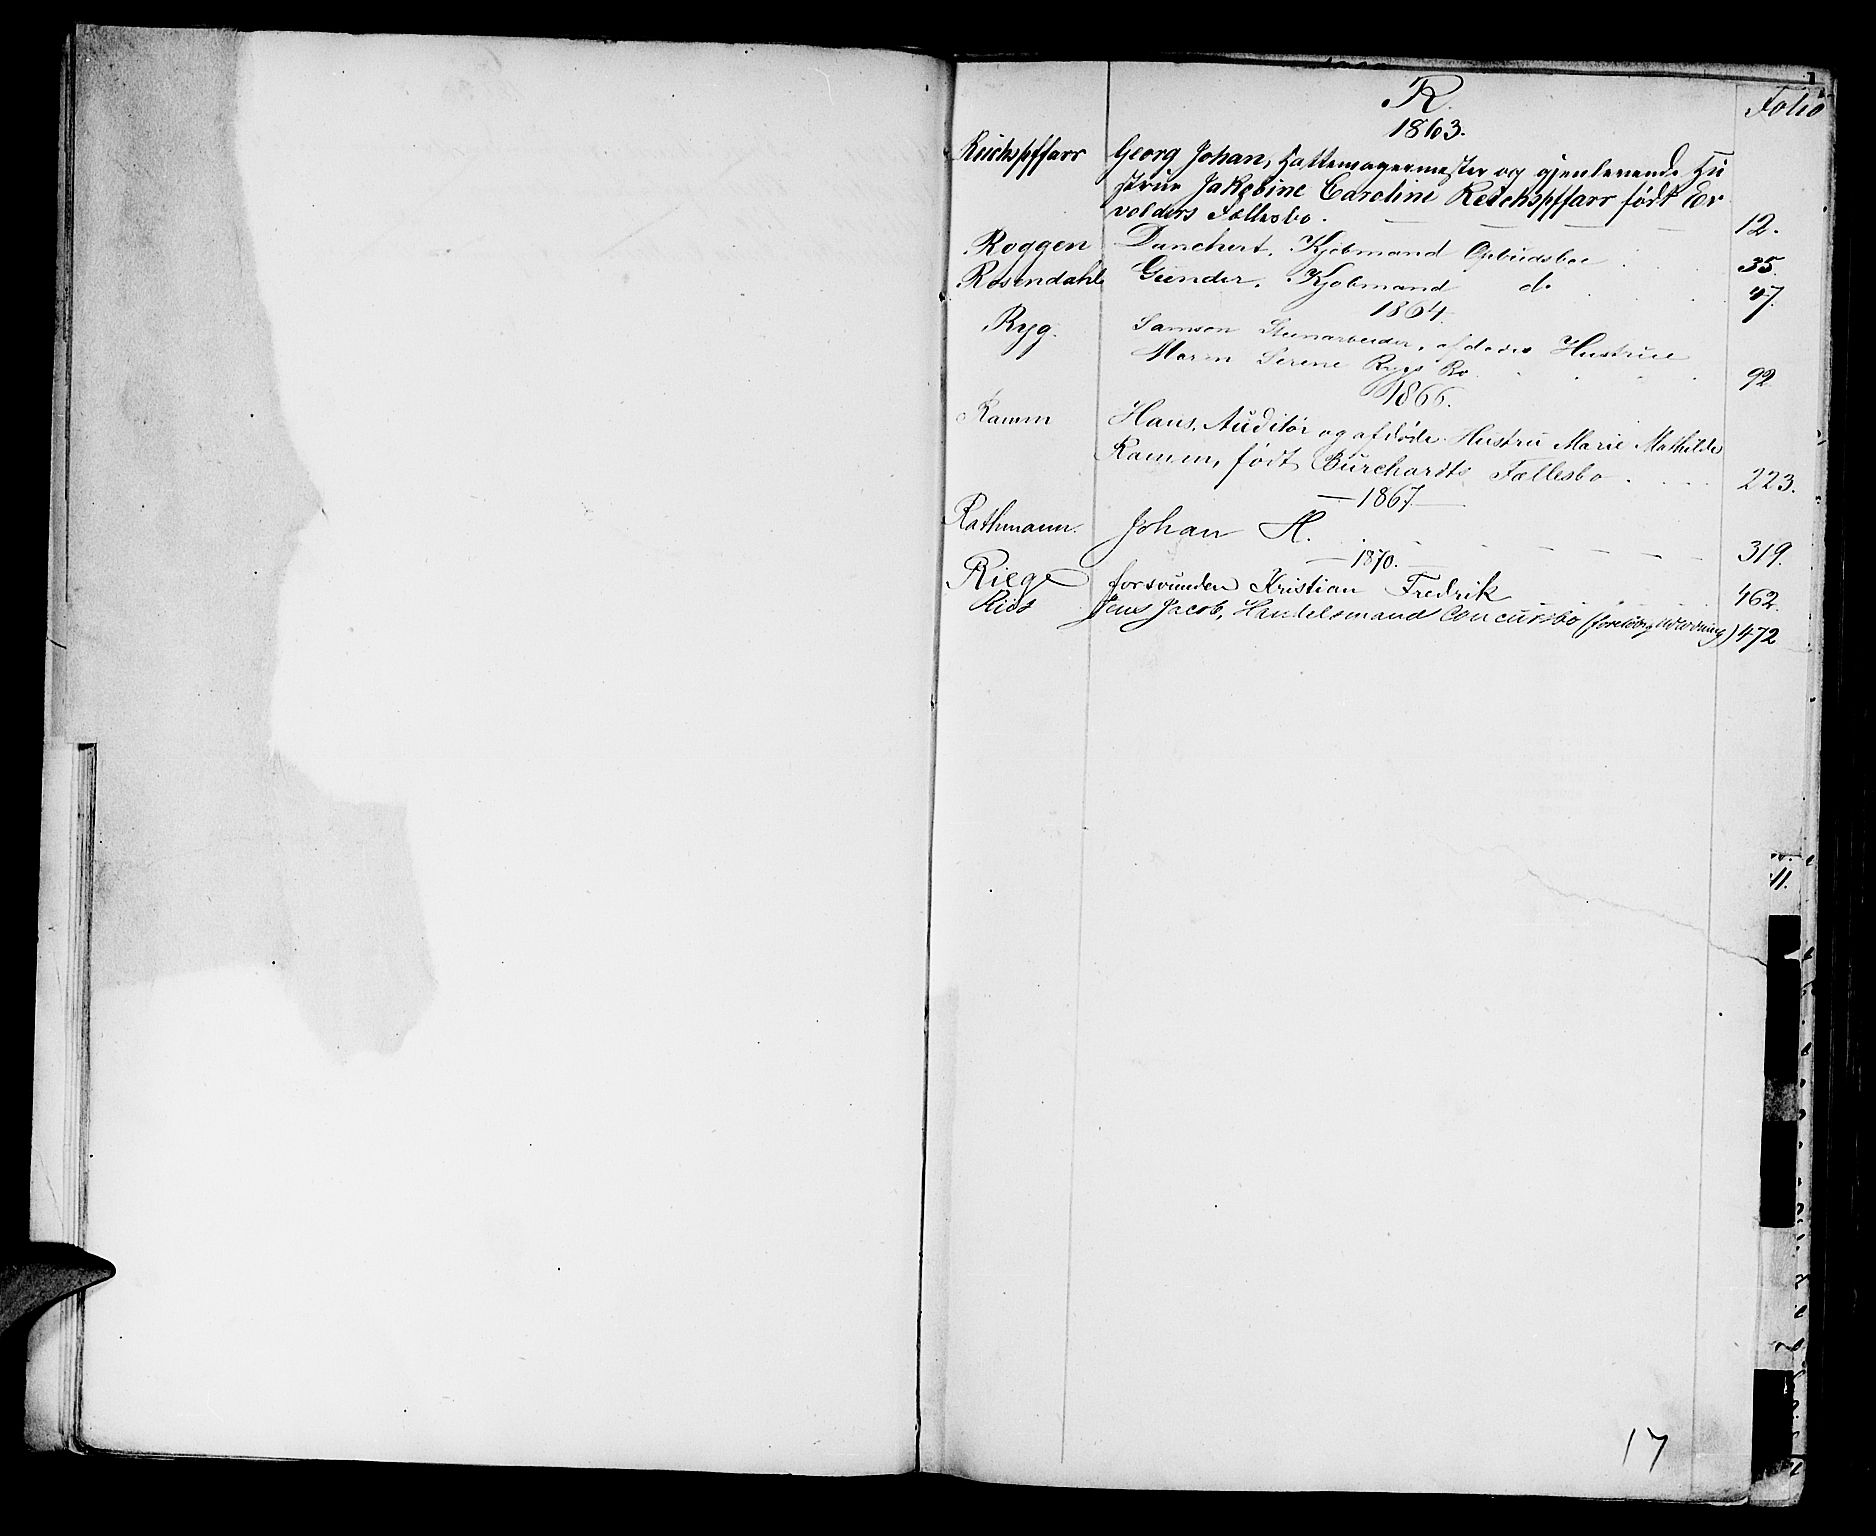 R.
Folio
1863.
Reichspffarr Georg Johan, Hattemagermester og gjenlevende Hu
strue Jakobine Caroline Reichspffarr født Eer
volders Fællesbo. 12.
Roggen Danchert, Kjøbmand Opbudsboe 35.
Rosendahl Gunder, Kjøbmand do 47.
1864.
Ryg. Samson Steenarbeider, afdøde Hustrue
Maren Serene Rygs Bo 92
1866.
Ramm Hans, Auditør og afdøde Hustru Marie Mathilde
Ramm, født Burchardts Fællesbo 223.
1867
Rathmann. Johan H. 319.
1870.
Riege forsvunden Kristian Fredrik 462
Riis Jens Jacob, Handelsmand Concursbo (foreløbig Udlodning) 472
17